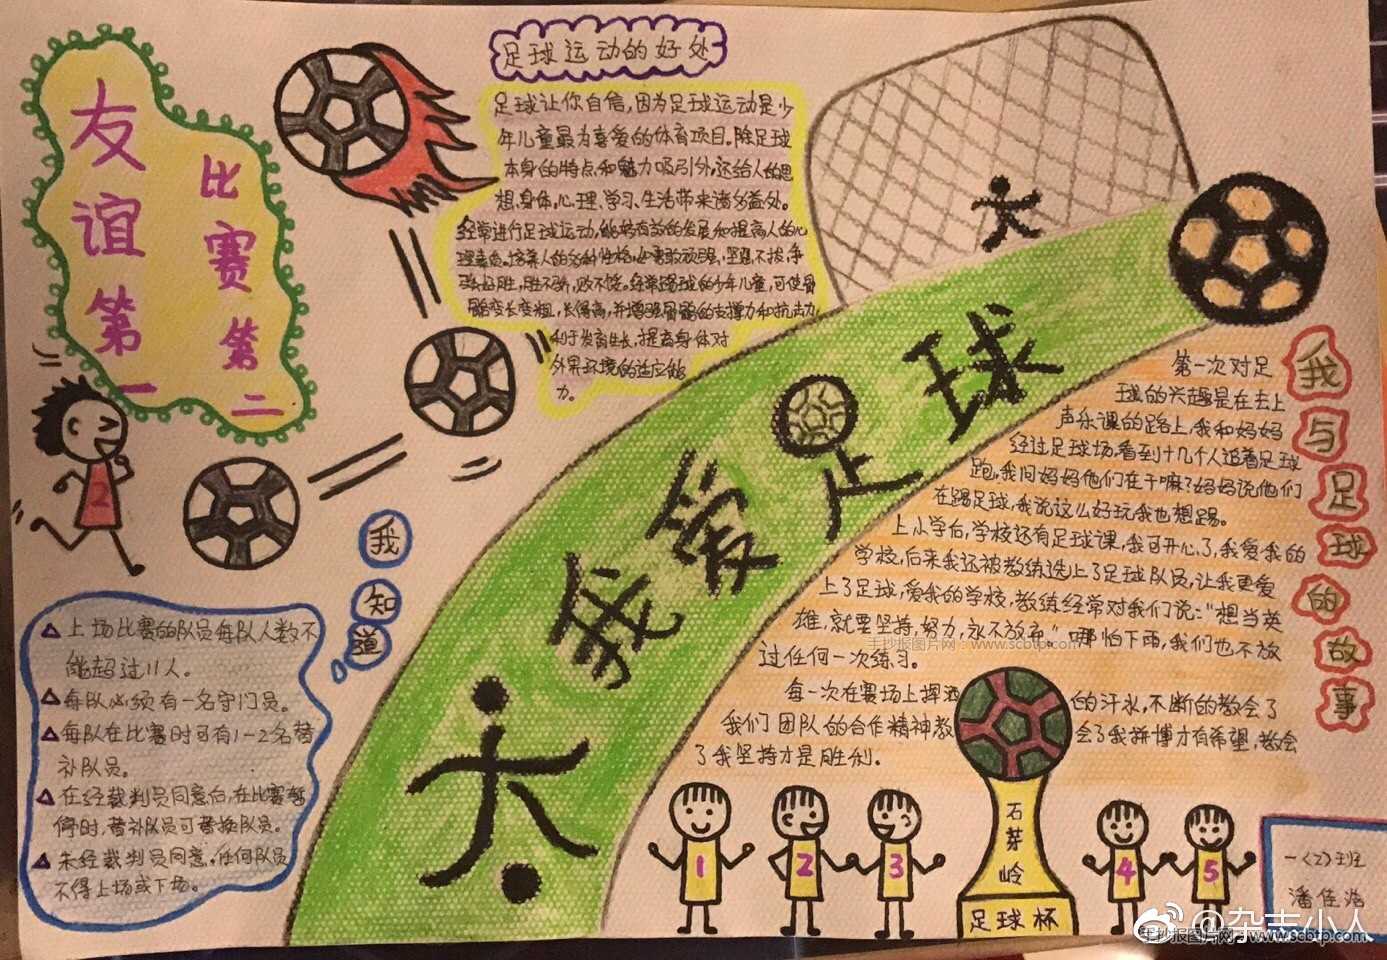 友谊第一
比赛第二
足球运动的好处
足球让你自信,因为足球运动是少
年儿童最为喜爱的体育项目。除足球
本身的特点和魅力吸引外,还给人的思
想、身体、心理、学习、生活带来诸多益处。
经常进行足球运动,能够有效的发展和提高人的心
理素质。培养人的各种性格,如勇敢顽强,坚忍不拔,争
强好胜,胜不骄,败不馁。经常踢球的少年儿童,可使骨
骼变长变粗,长得高,并增强骨骼的支撑力和抗击力,
利于发育生长,提高身体对
外界环境的适应能
力。
我爱足球
我知道
上场比赛的队员每队人数不
能超过11人。
每队必须有一名守门员。
每队在比赛时可有1-2名替
补队员。
在经裁判员同意后,在比赛暂
停时,替补队员可替换队员。
未经裁判员同意,任何队员
不得上场或下场。
我与足球的故事
第一次对足
球的兴趣是在去上
声乐课的路上,我和妈妈
经过足球场,看到十几个人追着足球
跑,我问妈妈他们在干嘛?妈妈说他们
在踢足球,我说这么好玩我也想踢。
上小学后,学校还有足球课,我可开心了,我爱我的
学校,后来我还被教练选上了足球队员,让我更爱
上了足球,爱我的学校,教练经常对我们说:"想当英
雄,就要坚持,努力,永不放弃。"哪怕下雨,我们也不放
过任何一次练习。
每一次在赛场上挥洒的汗水,不断的教会了
我们团队的合作精神教会了我拼博才有希望,教会
了我坚持才是胜利。
手抄报图片网:www.scbtp.com
2
1
2
3
4
5
石芽岭
足球杯
一〈2〉班
潘佳浩
@杂志小人
手抄报图片网:www.scbtp.com